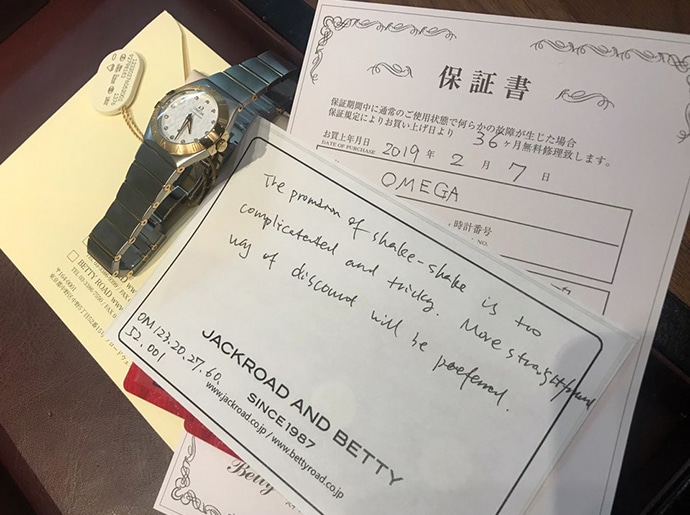 保証書
保証期間中に通常のご使用状態で何らかの故障が生じた場合
保証規定によりお買い上げ日より 36 ヶ月無料修理致します。
お買上年月日 2019 年 2 月 7 日
DATE OF PURCHASE
OMEGA
時計番号
NO.
The promotion of shake-shake is too
complicateted and tricky. More straightforward
way of discound will be preferred.
OM123.20.27.60.
52.001
JACKROAD AND BETTY
SINCE1987
www.jackroad.co.jp / www.bettyroad.co.jp
BETTY ROAD WWW
〒164-0001
Betty